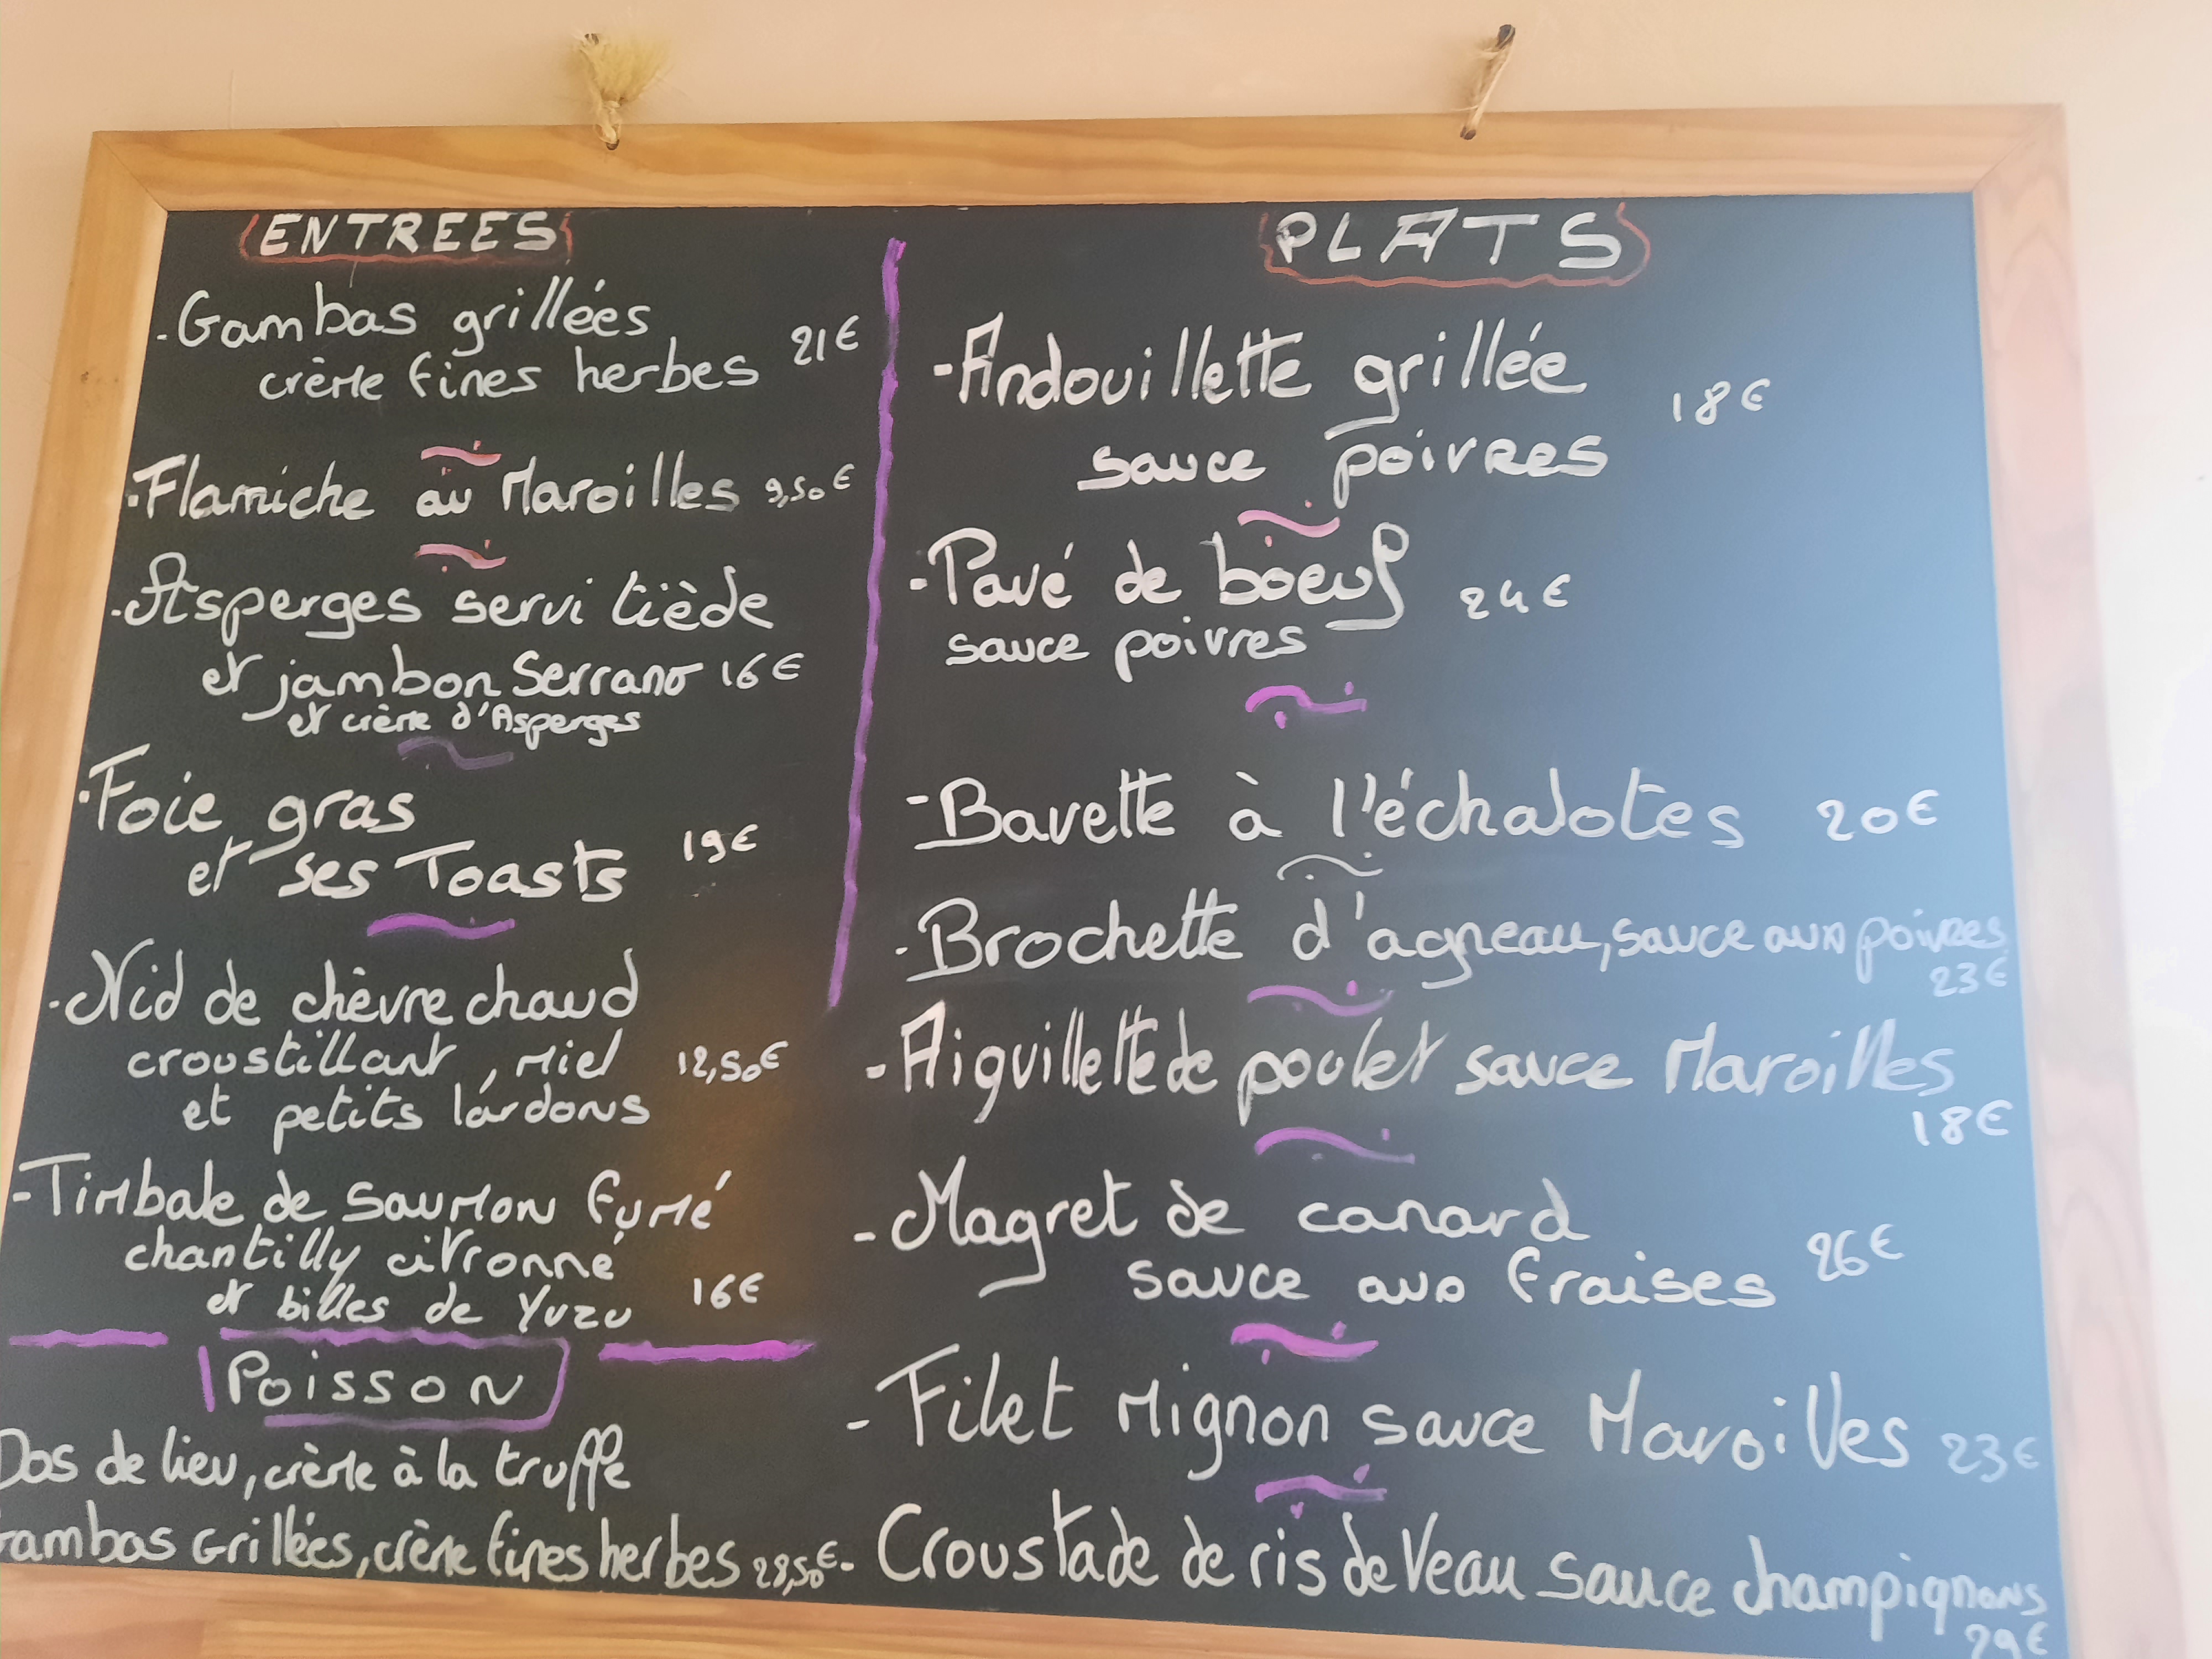 ENTREES
- Gambas grillées
crème fines herbes 21€
- Flamiche au Maroilles 9,50€
- Asperges servi tiède
et jambon Serrano 16€
et crème d'Asperges
- Foie gras
et ses Toasts 19€
- Nid de chèvre chaud
croustillant, miel 12,50€
et petits lardons
- Timbale de saumon fumé
chantilly citronné
et billes de Yuzu 16€
Poisson
Dos de lieu, crème à la truffe
Gambas Grillées, crème fines herbes 28,50€
PLATS
- Andouillette grillée 18€
sauce poivres
- Pavé de boeuf 24€
sauce poivres
- Bavette à l'échalotes 20€
- Brochette d'agneau, sauce aux poivres
23€
- Aiguillette de poulet sauce Maroilles
18€
- Magret de canard
sauce aux fraises 26€
- Filet Mignon sauce Maroilles 23€
- Croustade de ris de Veau sauce champignons
29€